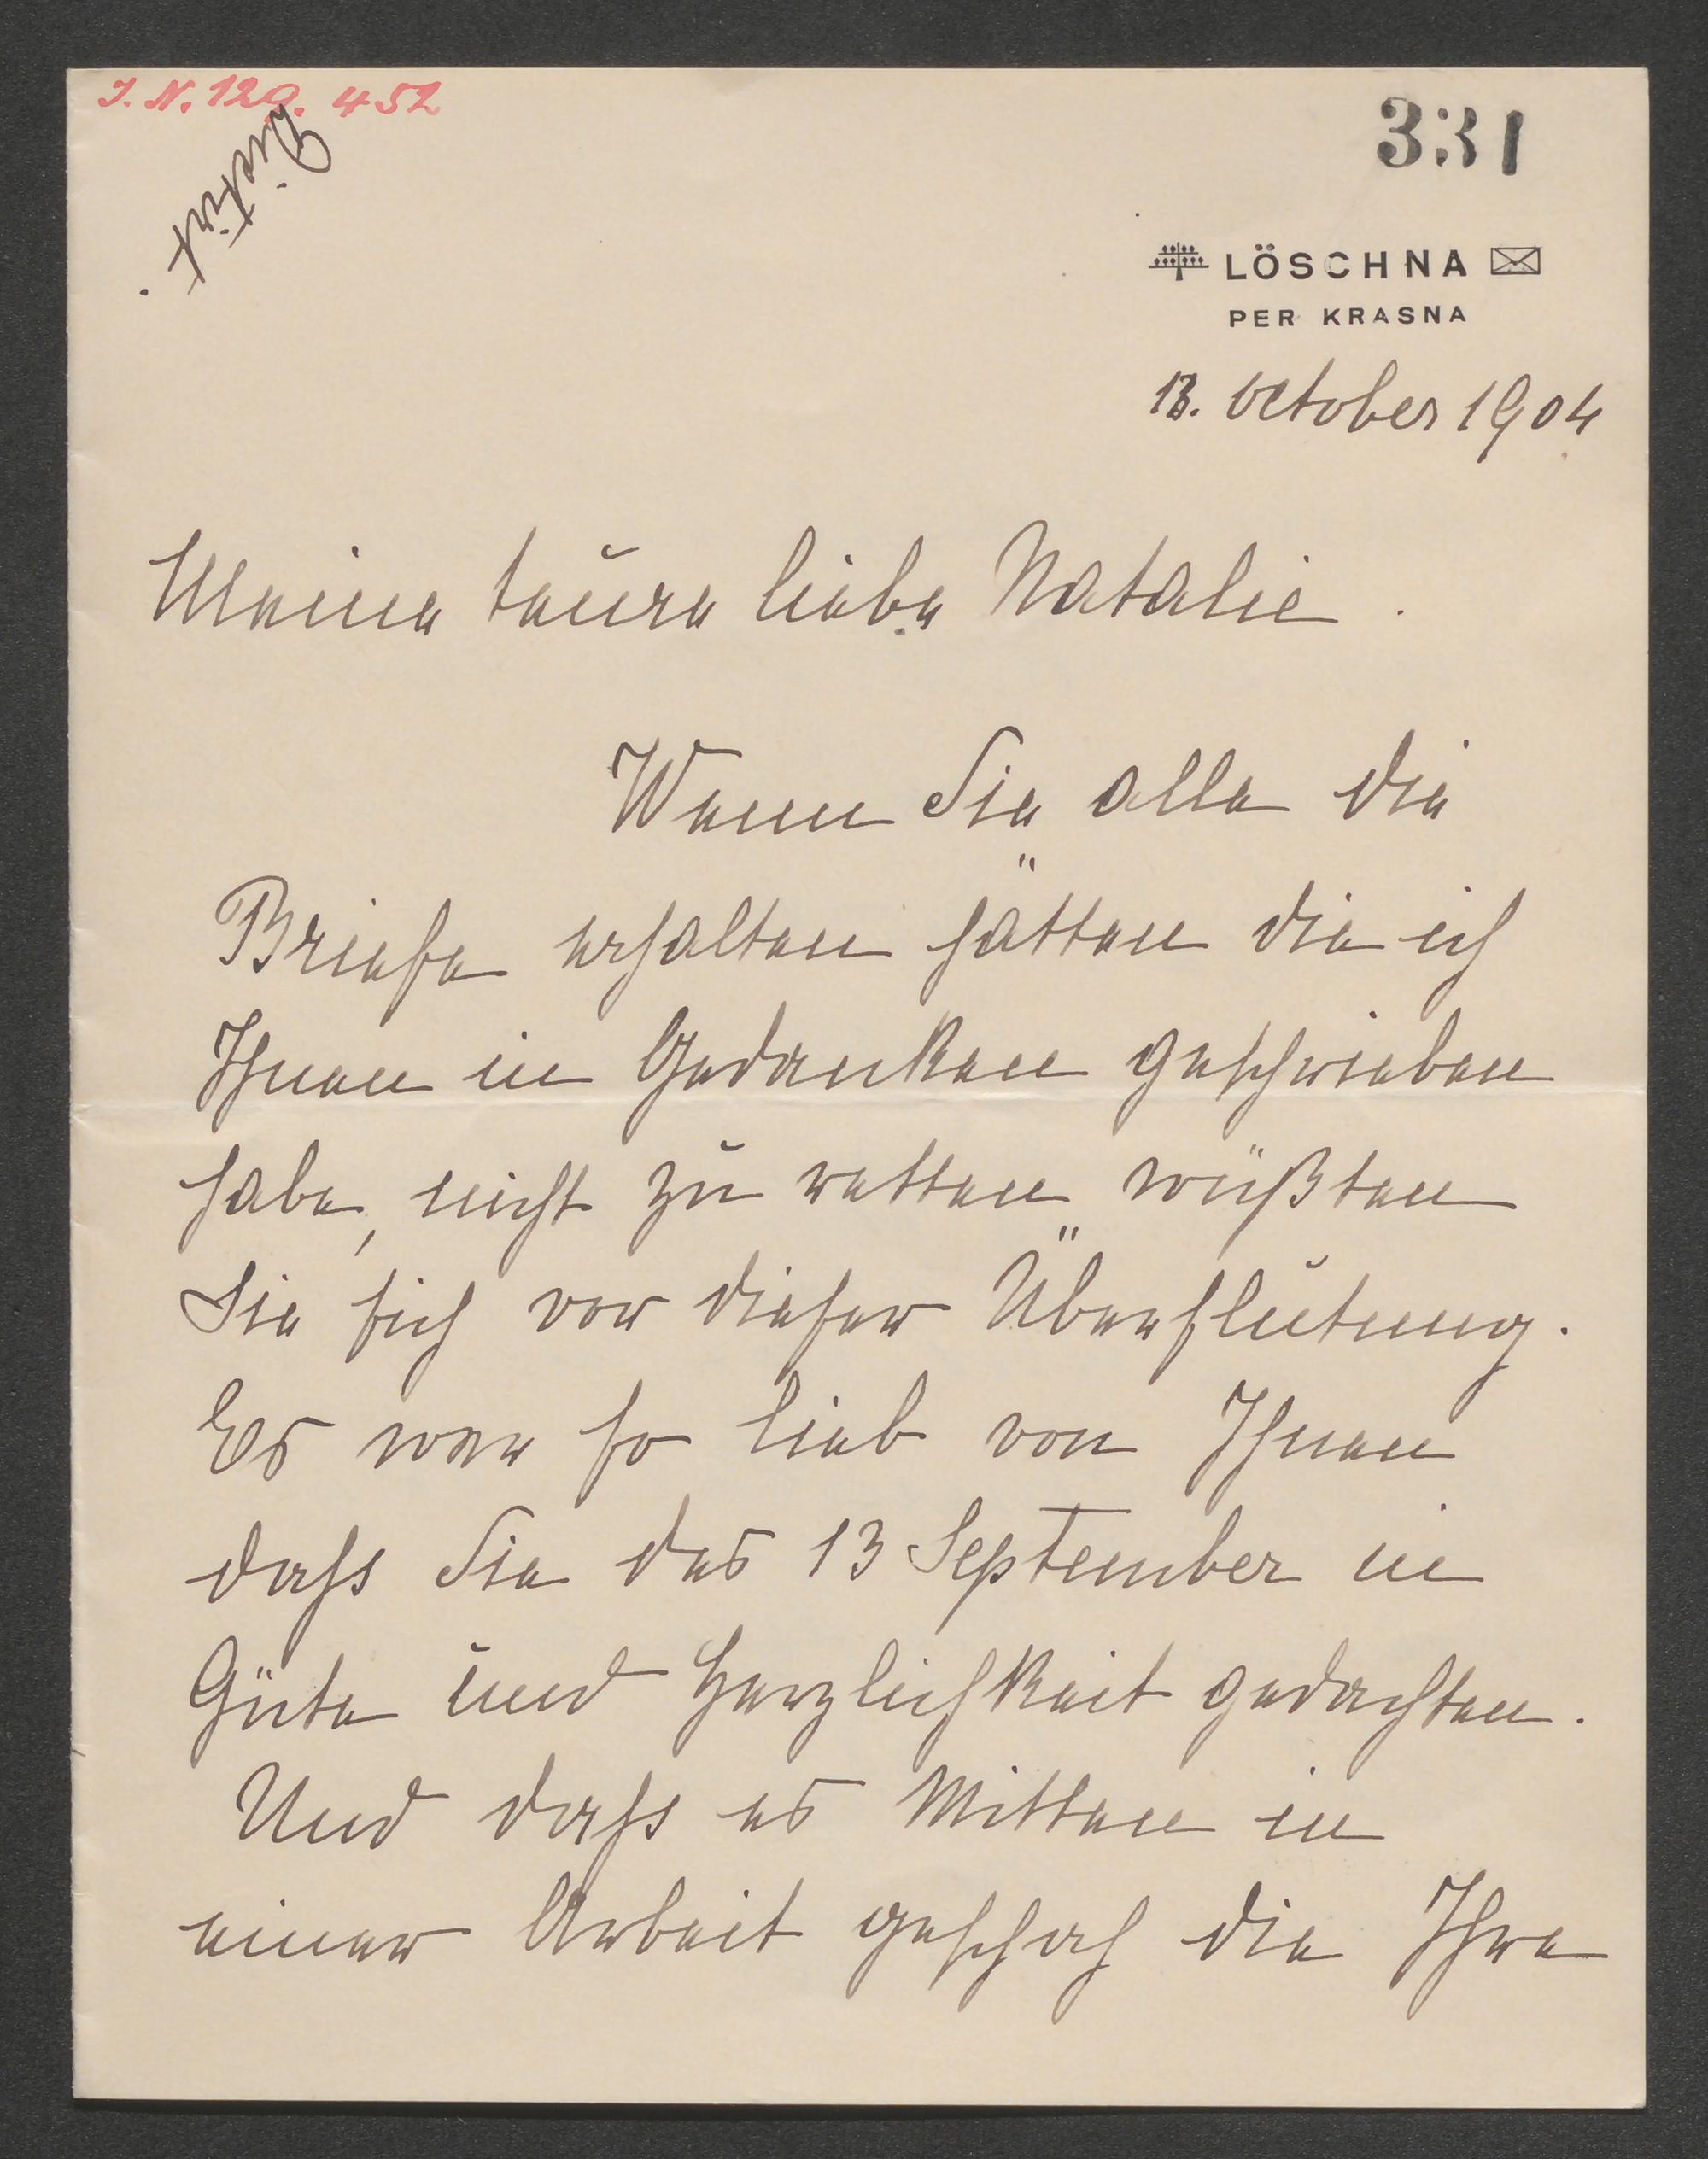 J. N. 129.452
Dictirt.
331
LÖSCHNA
PER KRASNA
13. October 1904
Meine teure liebe Natalie.
Wenn Sie alle die
Briefe erhalten hätten die ich
Ihnen in Gedanken geschrieben
habe, nicht zu retten wüßten
Sie sich vor dieser Überflutung.
Es war so lieb von Ihnen
dass Sie des 13 September in
Güte und Herzlichkeit gedachten.
Und dass es Mitten in
einer Arbeit geschah die Ihre